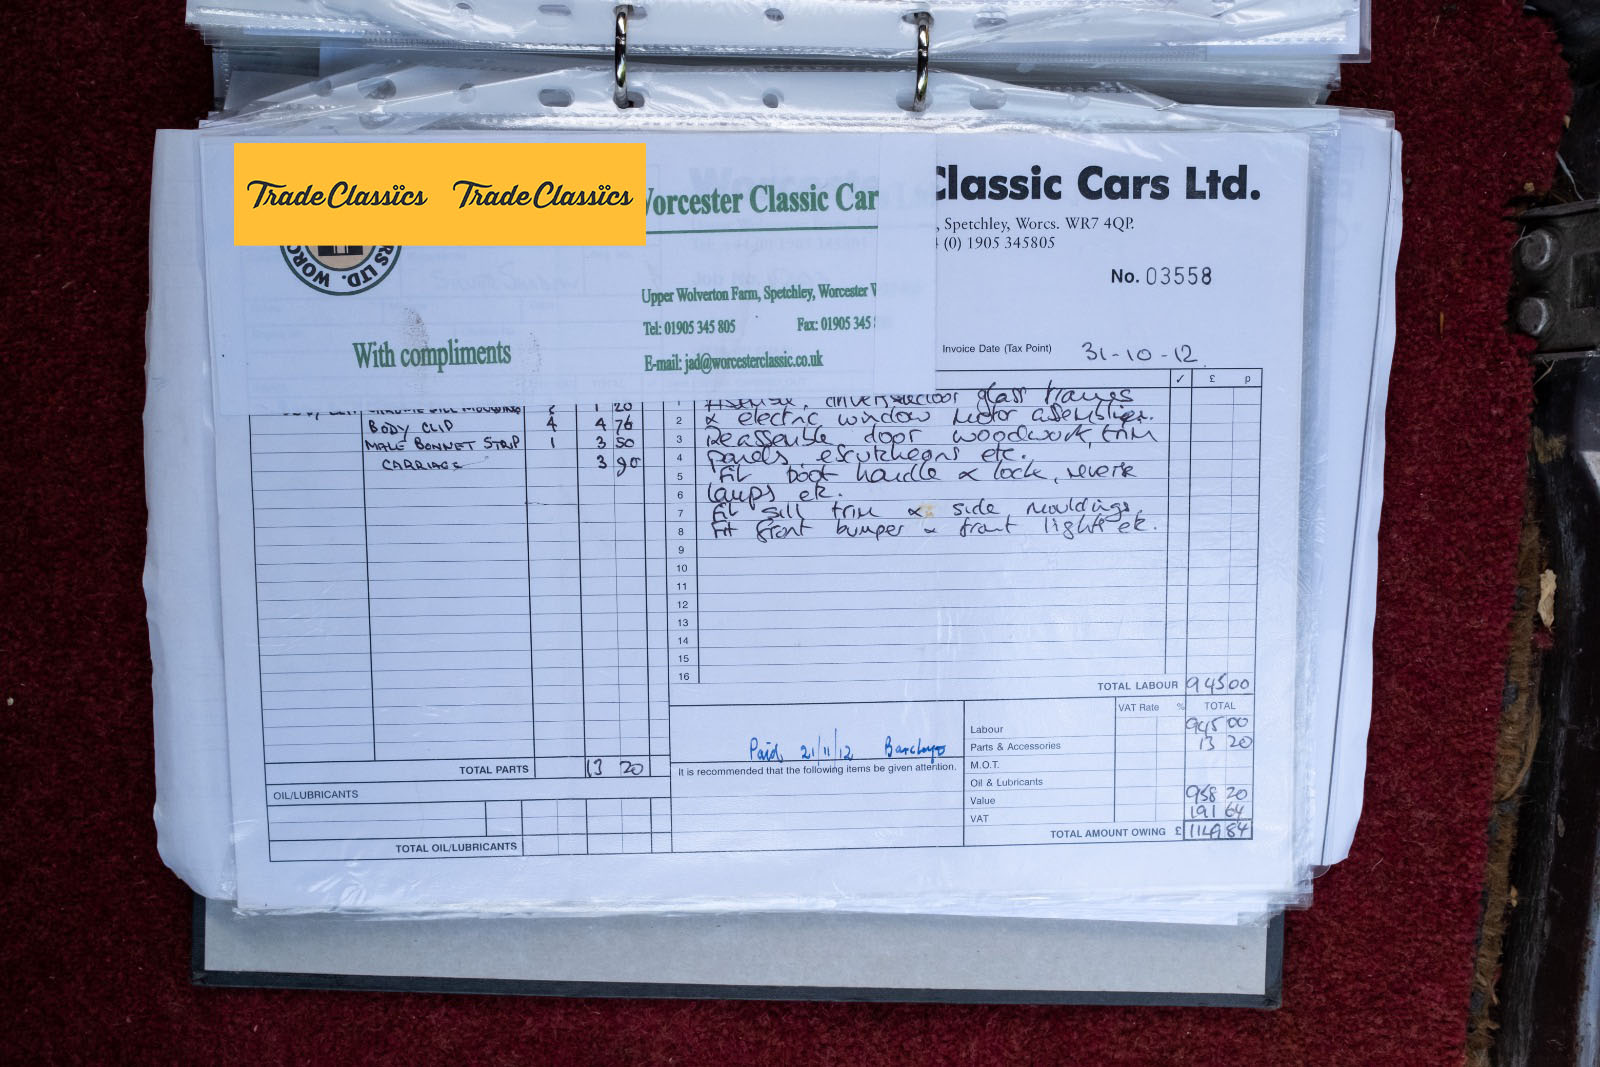 TradeClassics TradeClassics
Worcester Classic Car
Classic Cars Ltd.
, Spetchley, Worcs. WR7 4QP.
(0) 1905 345805
No. 03558
RS LTD. WORC
Upper Wolverton Farm, Spetchley, Worcester
Tel: 01905 345 805 Fax: 01905 345
With compliments
E-mail: jad@worcesterclassic.co.uk
Invoice Date (Tax Point) 31-10-12
✓ £ p
1 20
BODY CLIP 4 4 76
MALE BONNET STRIP 1 3 50
CARRIAGE 3 90
1 door glass frames
2 & electric window motor assemblies.
3 Reassemble door woodwork, trim
4 panels, escutcheons etc.
5 Fit boot handle & lock, reverse
6 lamps etc.
7 Fit sill trim & side mouldings,
8 Fit front bumper & front lights etc.
9
10
11
12
13
14
15
16
TOTAL LABOUR 945 00
VAT Rate % TOTAL
Labour 945 00
Parts & Accessories 13 20
M.O.T.
Oil & Lubricants
Value 958 20
VAT 191 64
TOTAL AMOUNT OWING £ 1149 84
Paid 21/11/12 Barclays
It is recommended that the following items be given attention.
TOTAL PARTS 13 20
OIL/LUBRICANTS
TOTAL OIL/LUBRICANTS